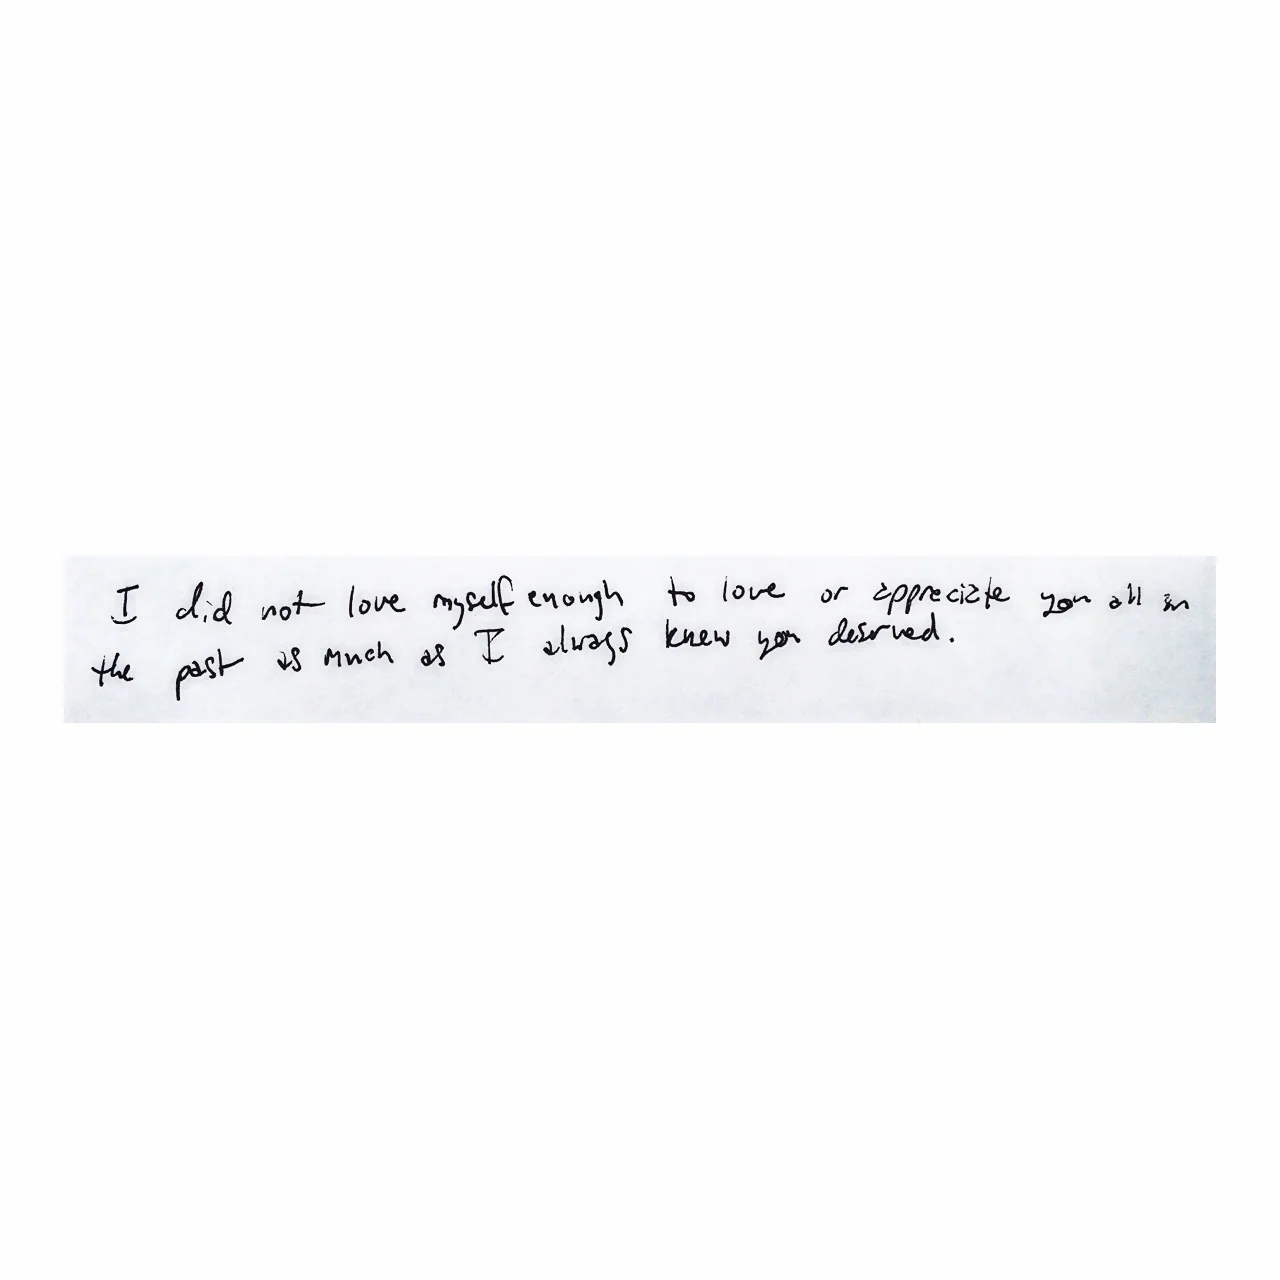 I did not love myself enough to love or appreciate you all in
the past as much as I always knew you deserved.